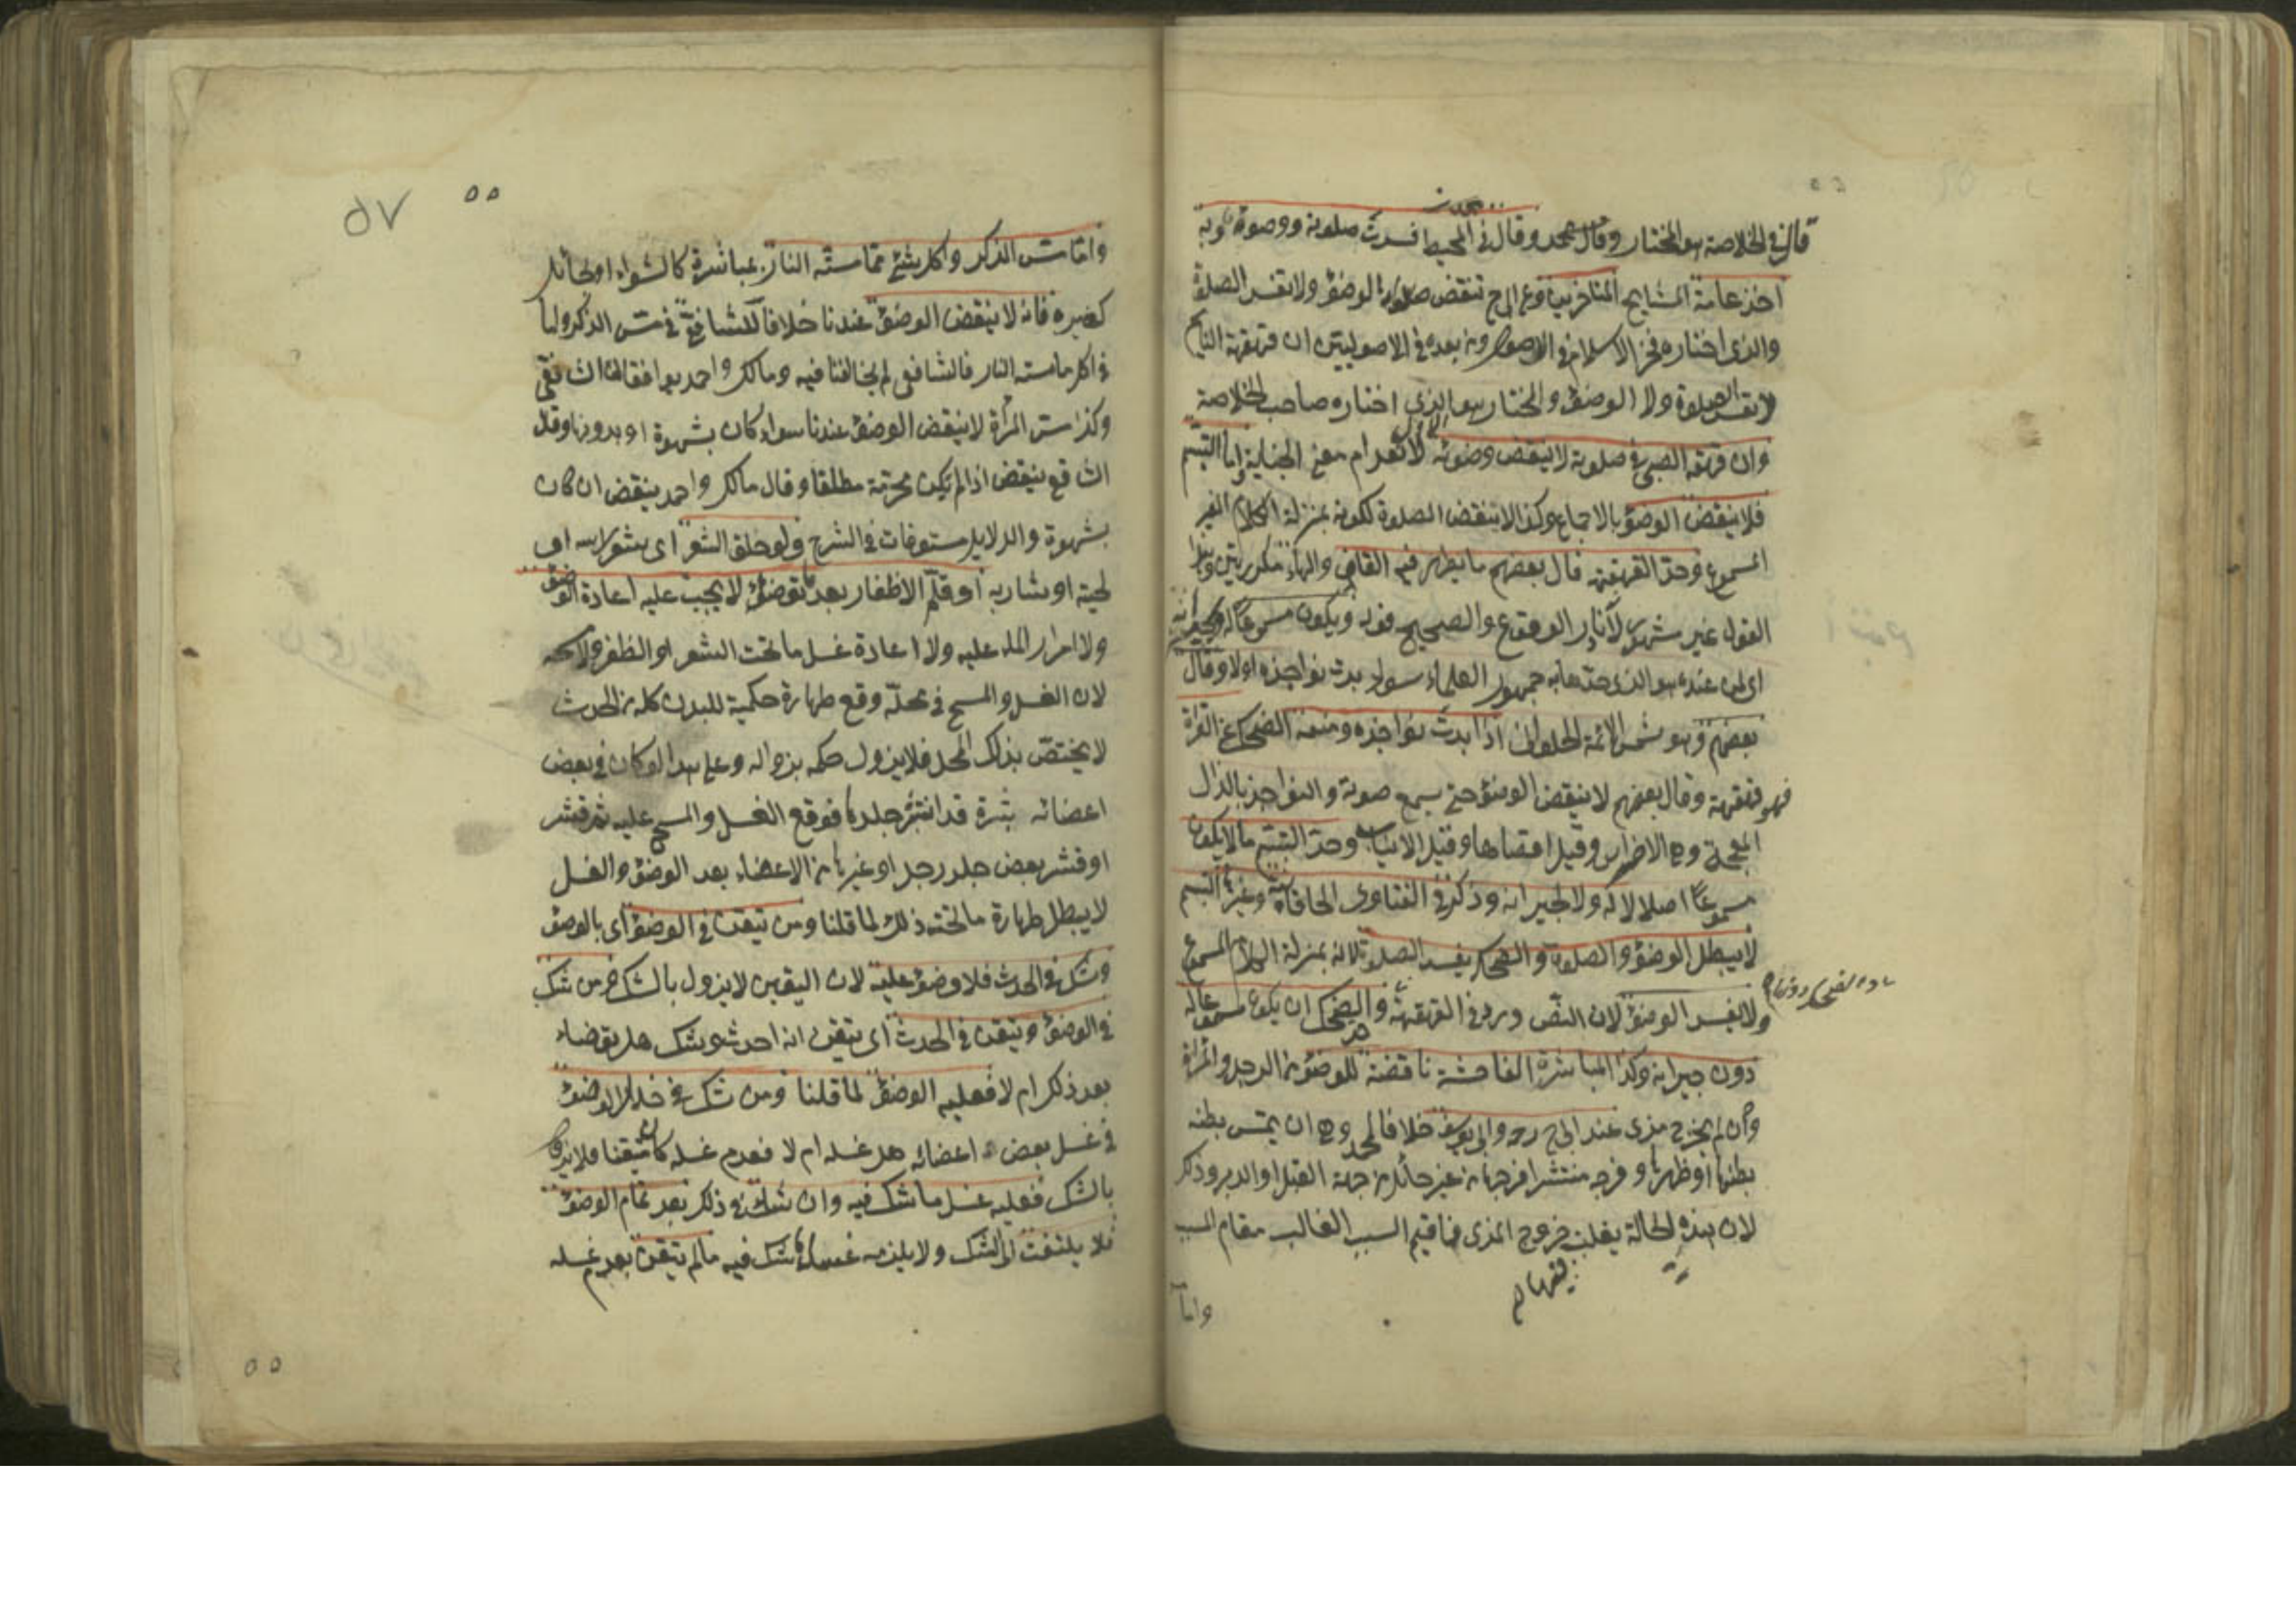 قال في الخلاصة هو المختار وقال محمد وقال في المحيط فسدت صلوته ووضوءه وبه
اخذ عامة المشايخ المتاخرين وعن ابى ح تنقض الوضوء ولا تفسد الصلوة
والذى اختاره فخر الاسلام في الاصول ومن بعده في الاصوليين ان قهقهة النايم
لا تفسد الصلوة ولا الوضوء والمختار هو الذى اختاره صاحب الخلاصة
وان قهقه الصبي في صلوته لا ينقض وضوئه لانعدام معنى الجناية واما التبسم
فلا ينقض الوضوء بالاجماع وكذا لا تنقض الصلوة لكونه بمنزلة الكلام الغير
المسموع وحد القهقهة قال بعضهم ما يظهر فيه القاف والهاء مكررتين وهذا
القول غير مشهور والصحيح ويكون مسموعا له ولجيرانه
اى لمن عنده هو الذى حدها به جمهور العلماء سواء بدت نواجذه اولا وقال
بعضهم وهو شمس الائمة الحلوانى اذا بدت نواجذه ومنعه الضحك عن القراة
فهو قهقهة وقال بعضهم لا ينقض الوضوء حتى يسمع صوته والنواجذ بالذال
المعجمة وهى الاضراس وقيل اقصاها وقيل الانياب وحد التبسم ما لا يكون
مسموعا اصلا لا له ولا لجيرانه وذكر في الفتاوى الخاقانية وغيرها التبسم
لا يبطل الوضوء والصلوة والضحك يفسد الصلوة لانه بمنزلة الكلام المسموع
ولا يفسد الوضوء لان النص ورد في القهقهة والضحك ان يكون مسموعا له
دون جيرانه وكذا المباشرة الفاحشة ناقضة للوضوء من الرجل والمراة
وان لم يخرج مذى عند ابى ح رحه وابى يوسف خلافا لمحمد وهى ان يمس بطنه
بطنها او ظهرها وفرجه منتشر افرجها من غير حائل من جهة القبل او الدبر وذكر
لان هذه الحالة يغلب خروج المذى فاقيم السبب الغالب مقام المسبب
واما
٥٥
٥٧
واما مس الذكر واكل شئ مما مسته النار بمباشرة كالشواء او بحائل
كغيره فانه لا ينقض الوضوء عندنا خلافا للشافعي في مس الذكر واما
في اكل ما مسته النار فالشافعي لم يخالفنا فيه ومالك واحمد يوافقان الشافعي
وكذا مس المرأة لا ينقض الوضوء عندنا سواء كان بشهوة او بدونها وقال
الشافعي ينقض اذا لم يكن محرمة مطلقا وقال مالك واحمد ينقض ان كان
بشهوة والدلايل مستوفات في الشرح ولو حلق الشعر اى شعر راسه او
لحيته او شاربه او قلم الاظفار بعد ما توضؤ لا يجب عليه اعادة الوضوء
ولا امرار الماء عليه ولا اعادة غسل ما تحت الشعر او الظفر ولا مسحه
لان الغسل والمسح في محله وقع طهارة حكمية للبدن كله من الحدث
لا يختص بذلك المحل فلا يزول حكمه بزواله وعلى هذا لو كان في بعض
اعضائه بثرة قد انتبر جلدها فوقع الغسل والمسح عليه ثم قشر
او قشر بعض جلد رجل او غيرها من الاعضاء بعد الوضوء والغسل
لا يبطل طهارة ما تحته ذلك لما قلنا ومن تيقن في الوضوء اى بالوضوء
وشك في الحدث فلا وضوء عليه لان اليقين لا يزول بالشك ومن شك
في الوضوء وتيقن في الحدث اى تيقن انه احدث وشك هل توضاء
بعد ذلك ام لا فعليه الوضوء لما قلنا ومن شك في خلال الوضوء
في غسل بعض اعضائه هل غسله ام لا فعدم غسله كان متيقنا فلا يزول
بالشك فعليه غسل ما شك فيه وان شك في ذلك بعد تمام الوضوء
فلا يلتفت الى الشك ولا يلزمه غسل ما شك فيه ما لم تيقن بعدم غسله
٥٥